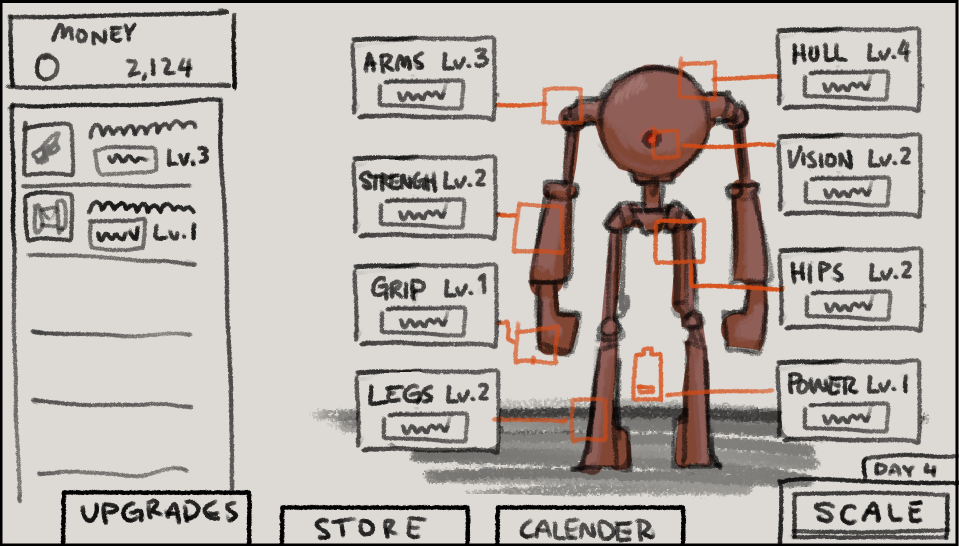 MONEY
2,124
Lv.3
Lv.1
ARMS Lv.3
STRENGH Lv.2
GRIP Lv.1
LEGS Lv.2
HULL Lv.4
VISION Lv.2
HIPS Lv.2
POWER Lv.1
DAY 4
UPGRADES
STORE
CALENDER
SCALE